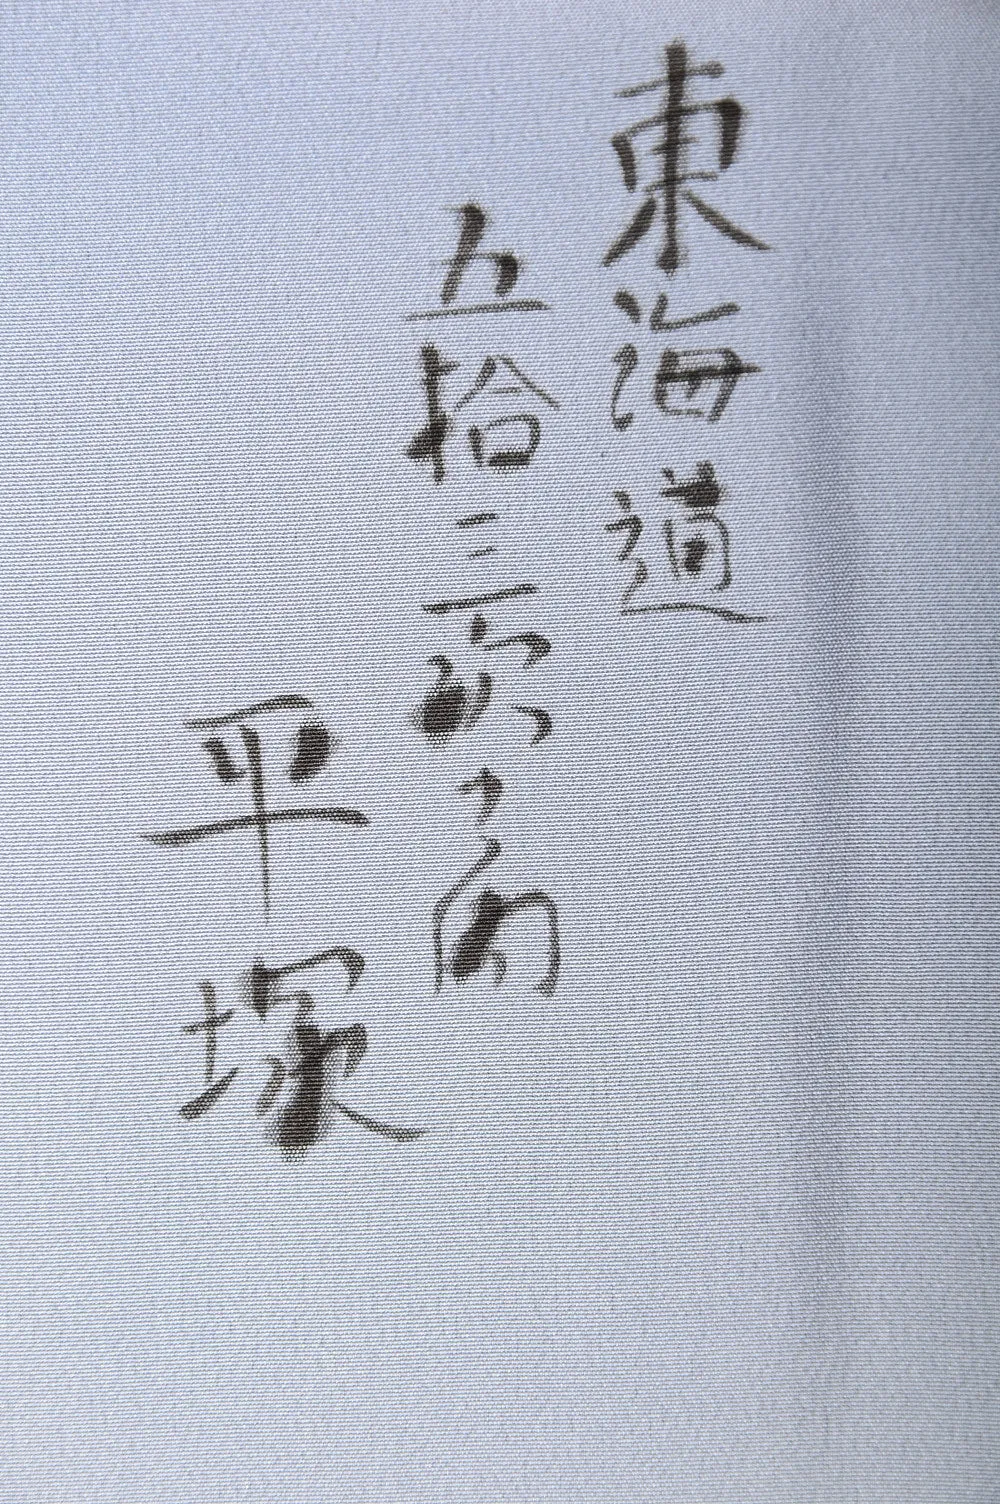 東海道
五拾三次之内
平塚